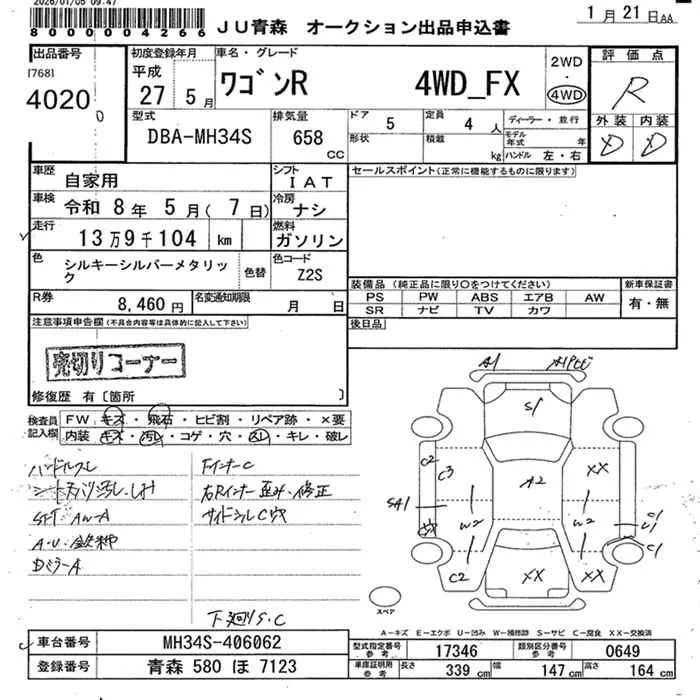 2026/01/05 09:47
0000004266
JU青森 オークション出品申込書
1月21日AA
出品番号
17681
4020
0
初度登録年月
平成
27 5月
車名・グレード
ワゴンR 4WD_FX
2WD
・
4WD
評価点
R
外装 内装
D D
型式
DBA-MH34S
排気量
658
CC
ドア
5
定員
4 人
形状
積載
kg
ディーラー・並行
モデル年式 年
ハンドル 左・右
車歴
自家用
シフト
IAT
車検
令和 8年 5月( 7日)
冷房
ナシ
走行
13万9千104 km
燃料
ガソリン
色
シルキーシルバーメタリック
色替
色コード
Z2S
R券
8,460円
名変通知期限
月 日
セールスポイント(正常に機能するものに限ります)
装備品(純正品に限り○をつけてください)
PS PW ABS エアB AW
SR ナビ TV カワ
新車保証書
有・無
後日品
注意事項申告欄(不具合内容等は具体的に記入して下さい)
売切りコーナー
修復歴 有〔箇所 〕
検査員記入欄
FW キズ・飛石・ヒビ割・リペア跡・×要
内装 キズ・汚レ・コゲ・穴・凹・キレ・破レ
ハンドルスレ
SFT・AW-A
DミラーA
FインナーC
右Rインナー歪み・修正
サイドシルC穴
下廻りS.C
A1
S1
C2
C3
A2
XX
SA1
W2
W2
C1
C2
XX
XX
スペア
A-キズ E-エクボ U-凹み W-補修跡 S-サビ C-腐食 XX-交換済
車台番号
MH34S-406062
登録番号
青森 580 ほ 7123
型式指定番号
参考
17346
類別区分番号
参考
0649
車庫証明用
参考
長さ
339 cm
幅
147 cm
高さ
164 cm